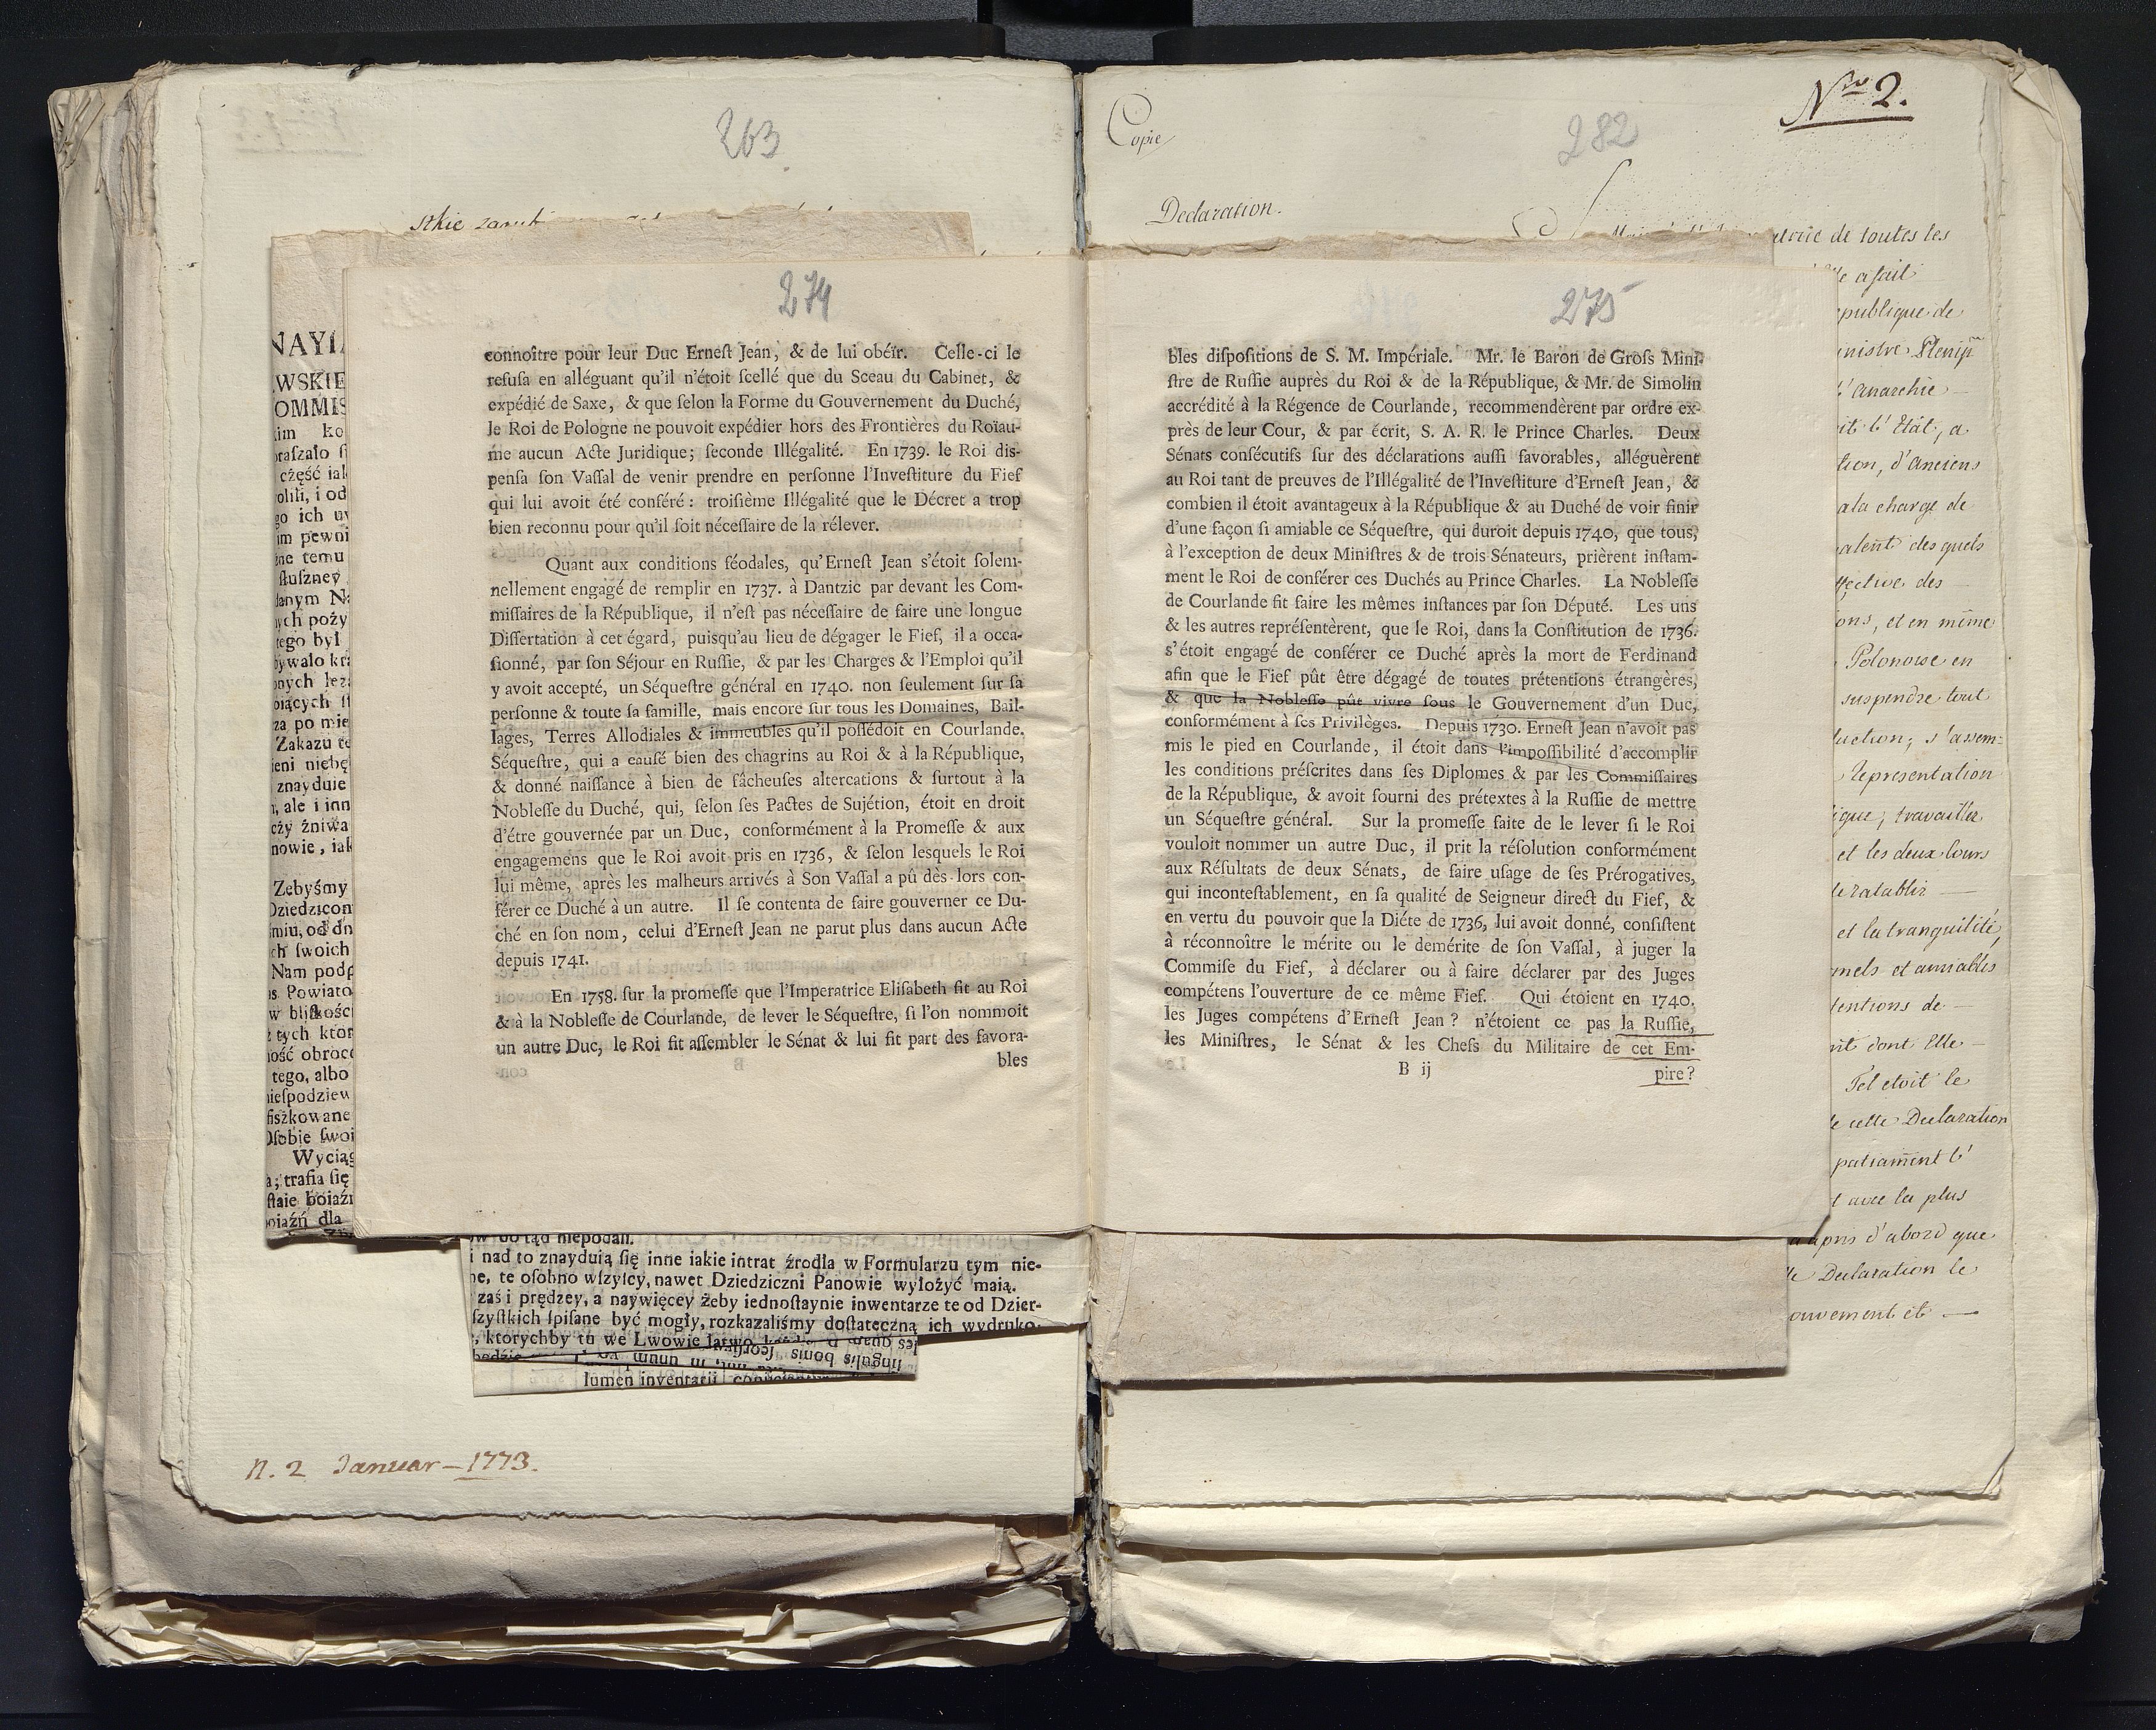 263
stkie
274
connoître pour leur Duc Erneſt Jean, & de lui obéïr. Celle-ci le
refuſa en alléguant qu'il n'étoit ſcellé que du Sceau du Cabinet, &
expédié de Saxe, & que ſelon la Forme du Gouvernement du Duché,
le Roi de Pologne ne pouvoit expédier hors des Frontières du Roïau-
me aucun Acte Juridique; ſeconde Illégalité. En 1739. le Roi dis-
penſa ſon Vaſſal de venir prendre en perſonne l'Inveſtiture du Fief
qui lui avoit été conféré: troiſième Illégalité que le Décret a trop
bien reconnu pour qu'il ſoit néceſſaire de la rélever.
Quant aux conditions féodales, qu'Erneſt Jean s'étoit ſolem-
nellement engagé de remplir en 1737. à Dantzic par devant les Com-
miſſaires de la République, il n'eſt pas néceſſaire de faire une longue
Diſſertation à cet égard, puisqu'au lieu de dégager le Fief, il a occa-
ſionné, par ſon Séjour en Ruſſie, & par les Charges & l'Emploi qu'il
y avoit accepté, un Séqueſtre général en 1740. non ſeulement ſur ſa
perſonne & toute ſa famille, mais encore ſur tous les Domaines, Bail-
lages, Terres Allodiales & immeubles qu'il poſſédoit en Courlande.
Séqueſtre, qui a cauſé bien des chagrins au Roi & à la République,
& donné naiſſance à bien de fâcheuſes altercations & ſurtout à la
Nobleſſe du Duché, qui, ſelon ſes Pactes de Sujétion, étoit en droit
d'étre gouvernée par un Duc, conformément à la Promeſſe & aux
engagemens que le Roi avoit pris en 1736, & ſelon lesquels le Roi
lui même, après les malheurs arrivés à Son Vaſſal a pû dès-lors con-
férer ce Duché à un autre. Il ſe contenta de faire gouverner ce Du-
ché en ſon nom, celui d'Erneſt Jean ne parut plus dans aucun Acte
depuis 1741.
En 1758. ſur la promeſſe que l'Imperatrice Eliſabeth fit au Roi
& à la Nobleſſe de Courlande, de lever le Séqueſtre, ſi l'on nommoit
un autre Duc, le Roi fit aſſembler le Sénat & lui fit part des favora-
bles
NAYI
WSKIE
OMMIS
im ko
raſzało
część iak
olili, i od
go ich uy
im pewni
ne temu
ſłuſzney
danym Na
ych poży
tego był
bywało kra
za po mie
Zakazu te
ieni niebę
znayduie
, ale i inn
czy żniwa
nowie, iak
Zebyśmy
Dziedzicom
miu, od dn
ch ſwoich
Nam podp
s Powiato
w bliſkości
z tych ktor
ność obroce
tego, albo
nieſpodziew
fiszkowane
Oſobie ſwoi
Wyciąg
a; trafia ſię
ſtaie boiaźń
oiaźń dla
ow do tąd niepodali.
i nad to znayduią ſię inne iakie intrat źrodła w Formularzu tym nie-
ne, te oſobno wſzyſcy, nawet Dziedziczni Panowie wyłożyć maią.
zaś i prędzey, a naywięcey żeby iednoſtaynie inwentarze te od Dzier-
ſzyſtkich ſpiſane być mogły, rozkazaliśmy doſtateczną ich wydruko-
, ktorychby tu we Lwowie łatwo
ſingulis bonis ſeorſim
lumen inventarii
N. 2 Januar – 1773.
Nro 2.
Copie
282
Declaration.
de toutes les
Elle a fait
republique de
ministre Plenip
l'anarchie
l'Etât, a
tion, d'anciens
a la charge de
des quels
ffective des
ons, et en même
Polonoise en
suspendre tout
uction; s'assem-
representation
ique; travaillée
et les deux Cours
de retablir
et la tranquilité,
mels et amiables
tentions de
dont Elle
Tel etoit le
de cette Declaration
l'
avec la plus
appris d'abord que
Declaration le
ouvement et
275
bles diſpoſitions de S. M. Impériale. Mr. le Baron de Groſs Mini-
ſtre de Ruſſie auprès du Roi & de la République, & Mr. de Simolin
accrédité à la Régence de Courlande, recommendèrent par ordre ex-
près de leur Cour, & par écrit, S. A. R. le Prince Charles. Deux
Sénats conſécutifs ſur des déclarations auſſi favorables, alléguèrent
au Roi tant de preuves de l'Illégalité de l'Inveſtiture d'Erneſt Jean, &
combien il étoit avantageux à la République & au Duché de voir finir
d'une façon ſi amiable ce Séqueſtre, qui duroit depuis 1740, que tous,
à l'exception de deux Miniſtres & de trois Sénateurs, prièrent inſtam-
ment le Roi de conférer ces Duchés au Prince Charles. La Nobleſſe
de Courlande fit faire les mêmes inſtances par ſon Député. Les uns
& les autres repréſentèrent, que le Roi, dans la Conſtitution de 1736.
s'étoit engagé de conférer ce Duché après la mort de Ferdinand
afin que le Fief pût être dégagé de toutes prétentions étrangères,
& que la Nobleſſe pût vivre ſous le Gouvernement d'un Duc,
conformément à ſes Privilèges. Depuis 1730. Erneſt Jean n'avoit pas
mis le pied en Courlande, il étoit dans l'impoſſibilité d'accomplir
les conditions préſcrites dans ſes Diplomes & par les Commiſſaires
de la République, & avoit fourni des prétextes à la Ruſſie de mettre
un Séqueſtre général. Sur la promeſſe faite de le lever ſi le Roi
vouloit nommer un autre Duc, il prit la réſolution conformément
aux Réſultats de deux Sénats, de faire uſage de ſes Prérogatives,
qui inconteſtablement, en ſa qualité de Seigneur direct du Fief, &
en vertu du pouvoir que la Diéte de 1736, lui avoit donné, conſiſtent
à réconnoître le mérite ou le demérite de ſon Vaſſal, à juger la
Commiſe du Fief, à déclarer ou à faire déclarer par des Juges
compétens l'ouverture de ce même Fief. Qui étoient en 1740.
les Juges compétens d'Erneſt Jean? n'étoient ce pas la Ruſſie,
les Miniſtres, le Sénat & les Chefs du Militaire de cet Em-
B ij
pire?